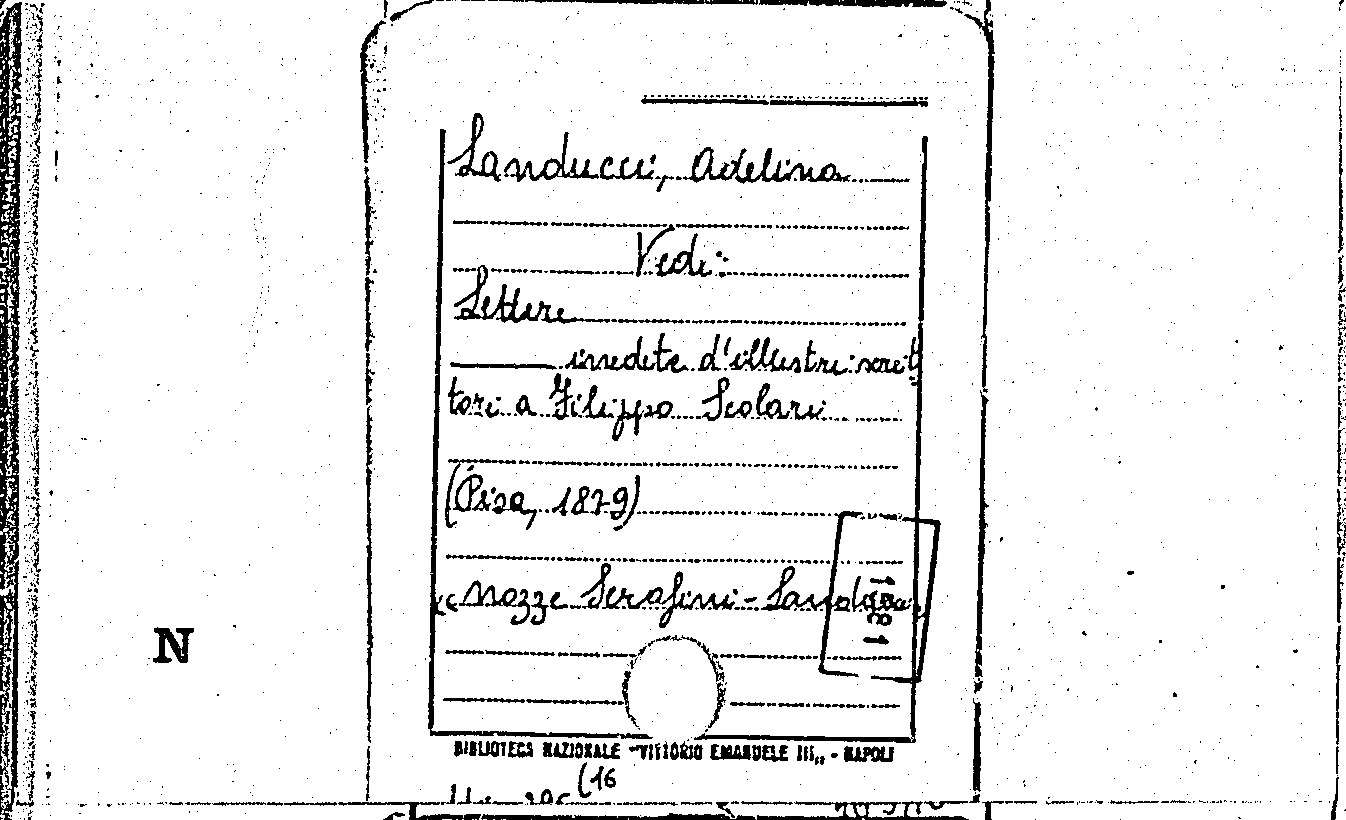 Landucci, Adelina
Vedi:
Lettere
inedite d'illustri scrit
tori a Filippo Scolari
(Pisa, 1879)
« Nozze Serafini-
N
BIBLIOTECA NAZIONALE "VITTORIO EMANUELE III„ - NAPOLI
(16